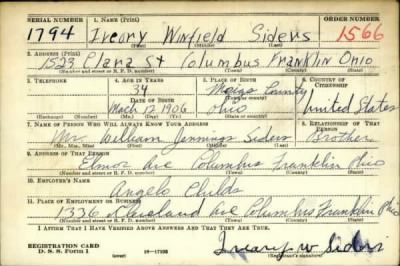 SERIAL NUMBER 1. NAME (Print) ORDER NUMBER
1794 Iveory Winfield Siders 1566
(First) (Middle) (Last)
2. ADDRESS (Print)
1523 Clara St Columbus Franklin Ohio
(Number and street or R. F. D. number) (Town) (County) (State)
3. TELEPHONE 4. AGE IN YEARS 5. PLACE OF BIRTH 6. COUNTRY OF CITIZENSHIP
34 Meigs County
DATE OF BIRTH (Town or county)
Mach 12 1906 Ohio United States
(Exchange) (Number) (Mo.) (Day) (Yr.) (State or country)
7. NAME OF PERSON WHO WILL ALWAYS KNOW YOUR ADDRESS 8. RELATIONSHIP OF THAT PERSON
Mr. William Jennings Siders Brother
(Mr., Mrs., Miss) (First) (Middle) (Last)
9. ADDRESS OF THAT PERSON
Elmor Ave Columbus Franklin Ohio
(Number and street or R. F. D. number) (Town) (County) (State)
10. EMPLOYER'S NAME
Angelo Childs
11. PLACE OF EMPLOYMENT OR BUSINESS
1336 Cleveland Ave Columbus Franklin Ohio
(Number and street or R. F. D. number) (Town) (County) (State)
I AFFIRM THAT I HAVE VERIFIED ABOVE ANSWERS AND THAT THEY ARE TRUE.
REGISTRATION CARD
D. S. S. Form 1 (over) Siders
(Registrant's signature)